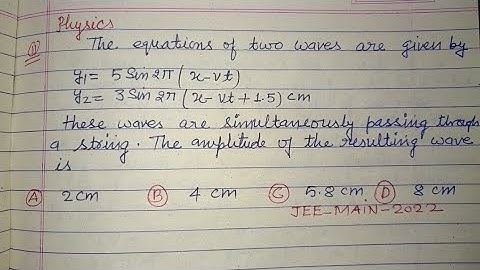 Physics
Q1) The equations of two waves are given by
y₁= 5 Sin 2π (x-vt)
y₂= 3 Sin 2π (x-vt+1.5) cm
these waves are simultaneously passing through
a string. The amplitude of the resulting wave
is
(A) 2 cm (B) 4 cm (C) 5.8 cm (D) 8 cm
JEE-MAIN-2022